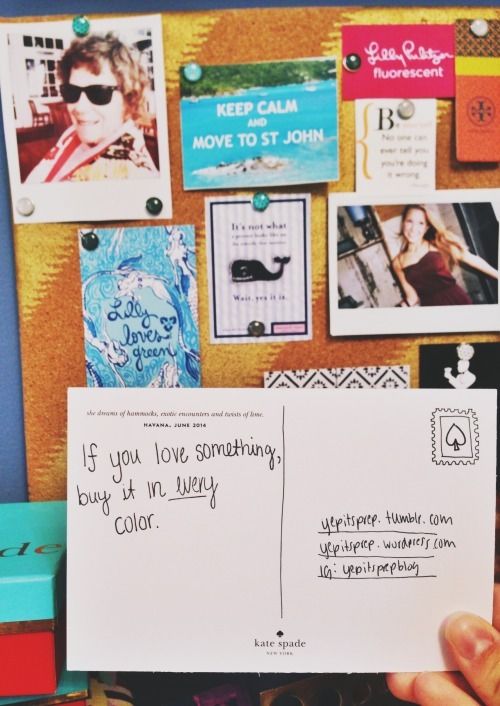 Lilly Pulitzer
fluorescent
KEEP CALM
AND
MOVE TO ST JOHN
Be
No one can
ever tell you
you're doing
it wrong.
It's not what
Wait, yes it is.
Lilly
loves
green
de
she dreams of hammocks, exotic encounters and twists of lime.
HAVANA, JUNE 2014
If you love something,
buy it in every
color.
yepitsprep.tumblr.com
yepitsprep.wordpress.com
IG: yepitsprepblog
kate spade
NEW YORK